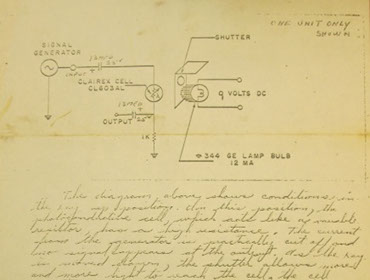 ONE UNIT ONLY
SHOWN
SHUTTER
SIGNAL
GENERATOR
INPUT
CLAIREX CELL
CL803AL
9 VOLTS DC
OUTPUT
1K
344 GE LAMP BULB
12 MA
The diagram above shows conditions in
the key up position. In this position, the
photoconductive cell, which acts like a variable
resistor, has a high resistance. The current
from the generator is practically cut off and
no signal appears at the output. As the key
is moved down, the shutter allows more
and more light to reach the cell. The cell